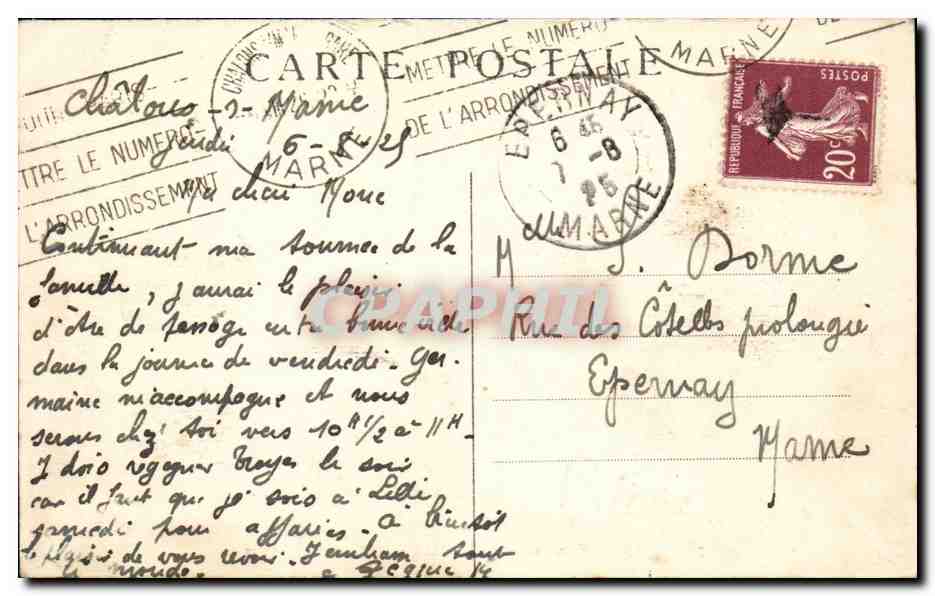 CARTE POSTALE
METTRE LE NUMERO
DE L'ARRONDISSEMENT
MARNE
TTRE LE NUMERO
L'ARRONDISSEMENT
CHALONS
MARNE
EPERNAY
6 45
-8
25
MARNE
REPUBLIQUE FRANÇAISE
POSTES
20c
Châlons -s- Marne
Jeudi 6-8-25
Ma chère
Continuant ma tournée de la
famille, j'aurai le plaisir
d'être de passage en ta bonne ville
dans la journée de vendredi. Ger-
maine m'accompagne et nous
serons chez toi vers 10H 1/2 à 11H.
J dois regagner Troyes le soir
car il faut que je sois à
samedi pour affaires. A bientôt
le plaisir de vous revoir. tout
le monde.
M J. Dorme
Rue des Côtelles prolongée
Epernay
Marne
CPAPHIL